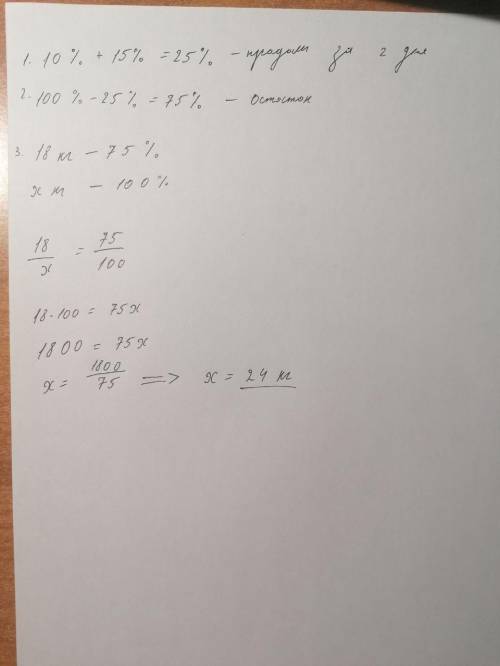 1. 10% + 15% = 25% – продали за 2 дня
2. 100% – 25% = 75% – Остаток
3. 18 кг – 75%
x кг – 100%
18/x = 75/100
18·100 = 75x
1800 = 75x
x = 1800/75 => x = 24 кг